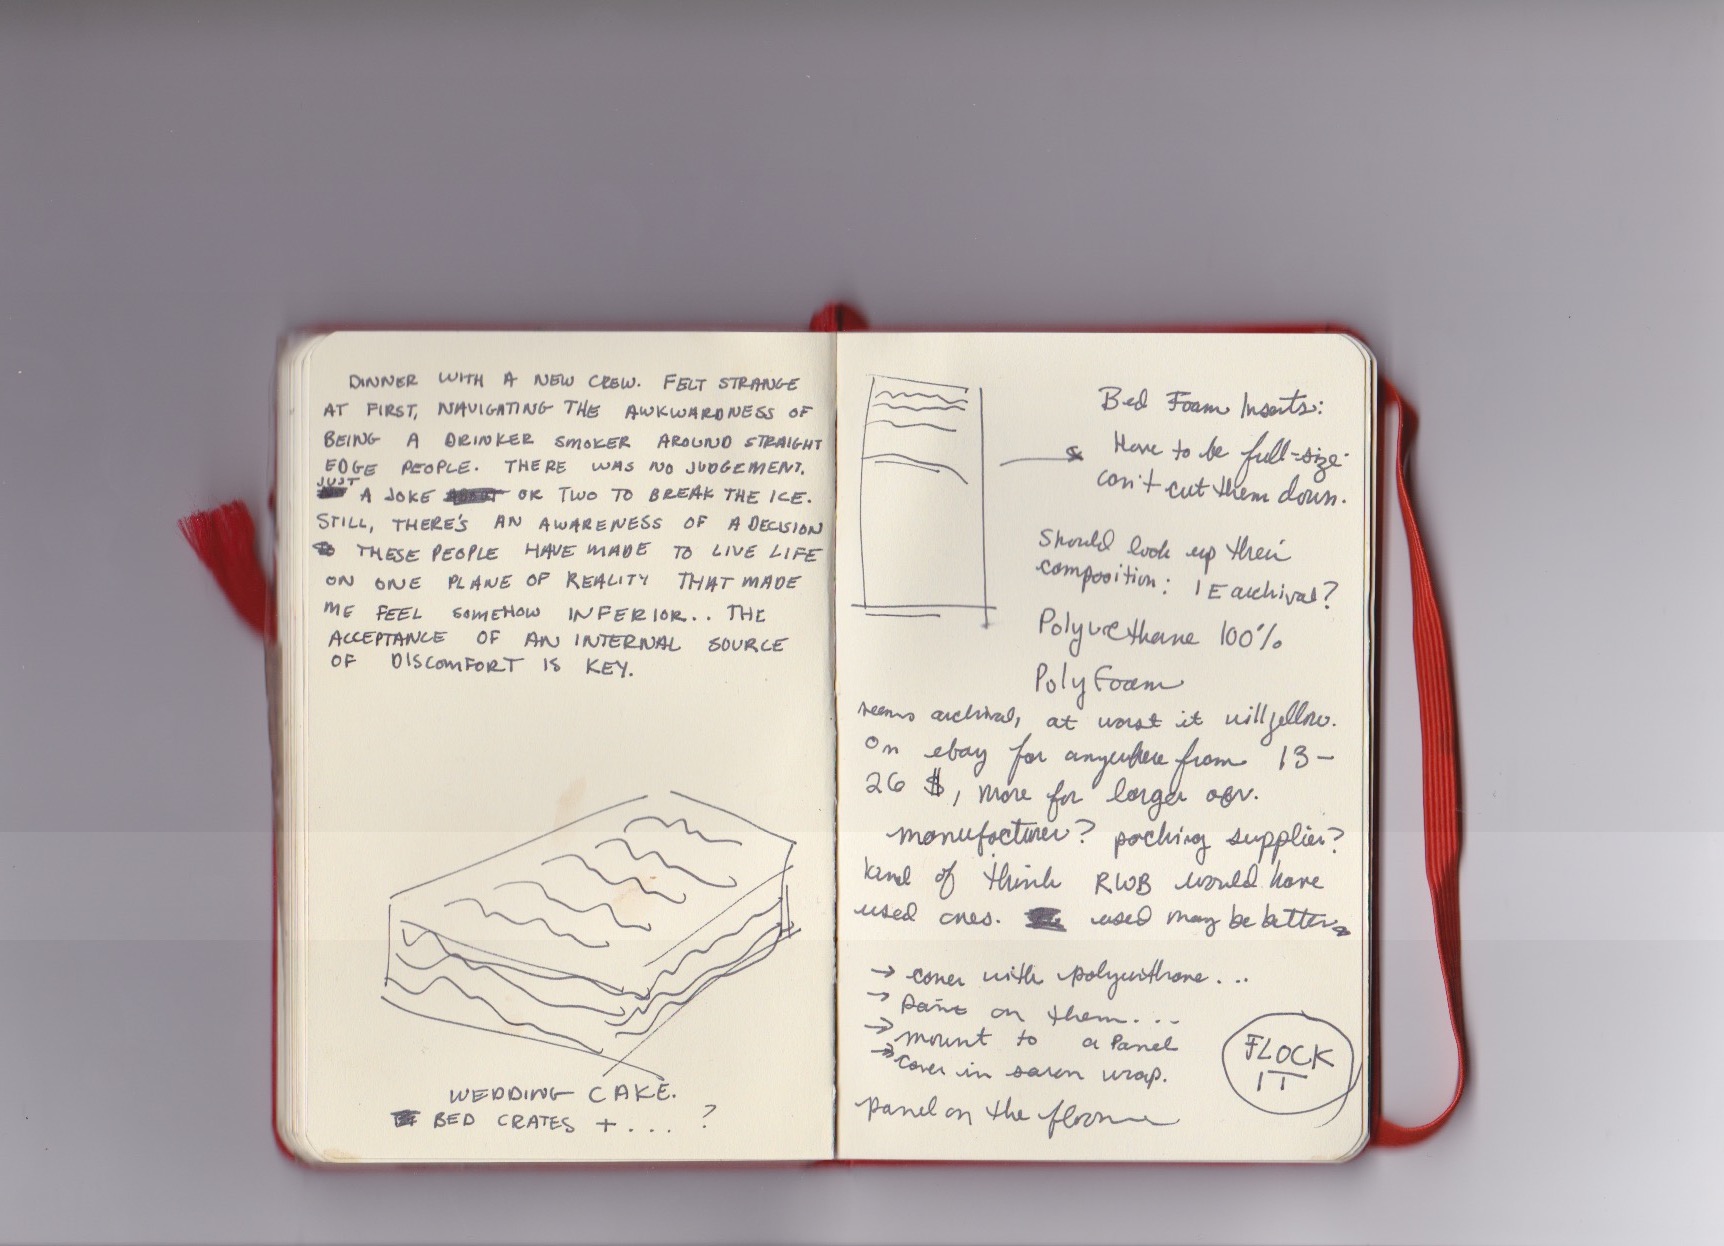 DINNER WITH A NEW CREW. FELT STRANGE
AT FIRST, NAVIGATING THE AWKWARDNESS OF
BEING A DRINKER SMOKER AROUND STRAIGHT
EDGE PEOPLE. THERE WAS NO JUDGEMENT.
JUST A JOKE OR TWO TO BREAK THE ICE.
STILL, THERE'S AN AWARENESS OF A DECISION
THESE PEOPLE HAVE MADE TO LIVE LIFE
ON ONE PLANE OF REALITY THAT MADE
ME FEEL SOMEHOW INFERIOR.. THE
ACCEPTANCE OF AN INTERNAL SOURCE
OF DISCOMFORT IS KEY.
WEDDING CAKE.
BED CRATES + . . . ?
Bed Foam Inserts:
Have to be full-size-
can't cut them down.
Should look up their
composition: IE archival?
Polyurethane 100%
Poly Foam
seems archival, at worst it will yellow.
On ebay for anywhere from 13-
26 $, more for larger
manufacturer? packing supplier?
kind of think RWB would have
used ones. used may be better
→ cover with polyurethane...
→ paint on them...
→ mount to a Panel
→ cover in saran wrap.
panel on the floor
FLOCK
IT